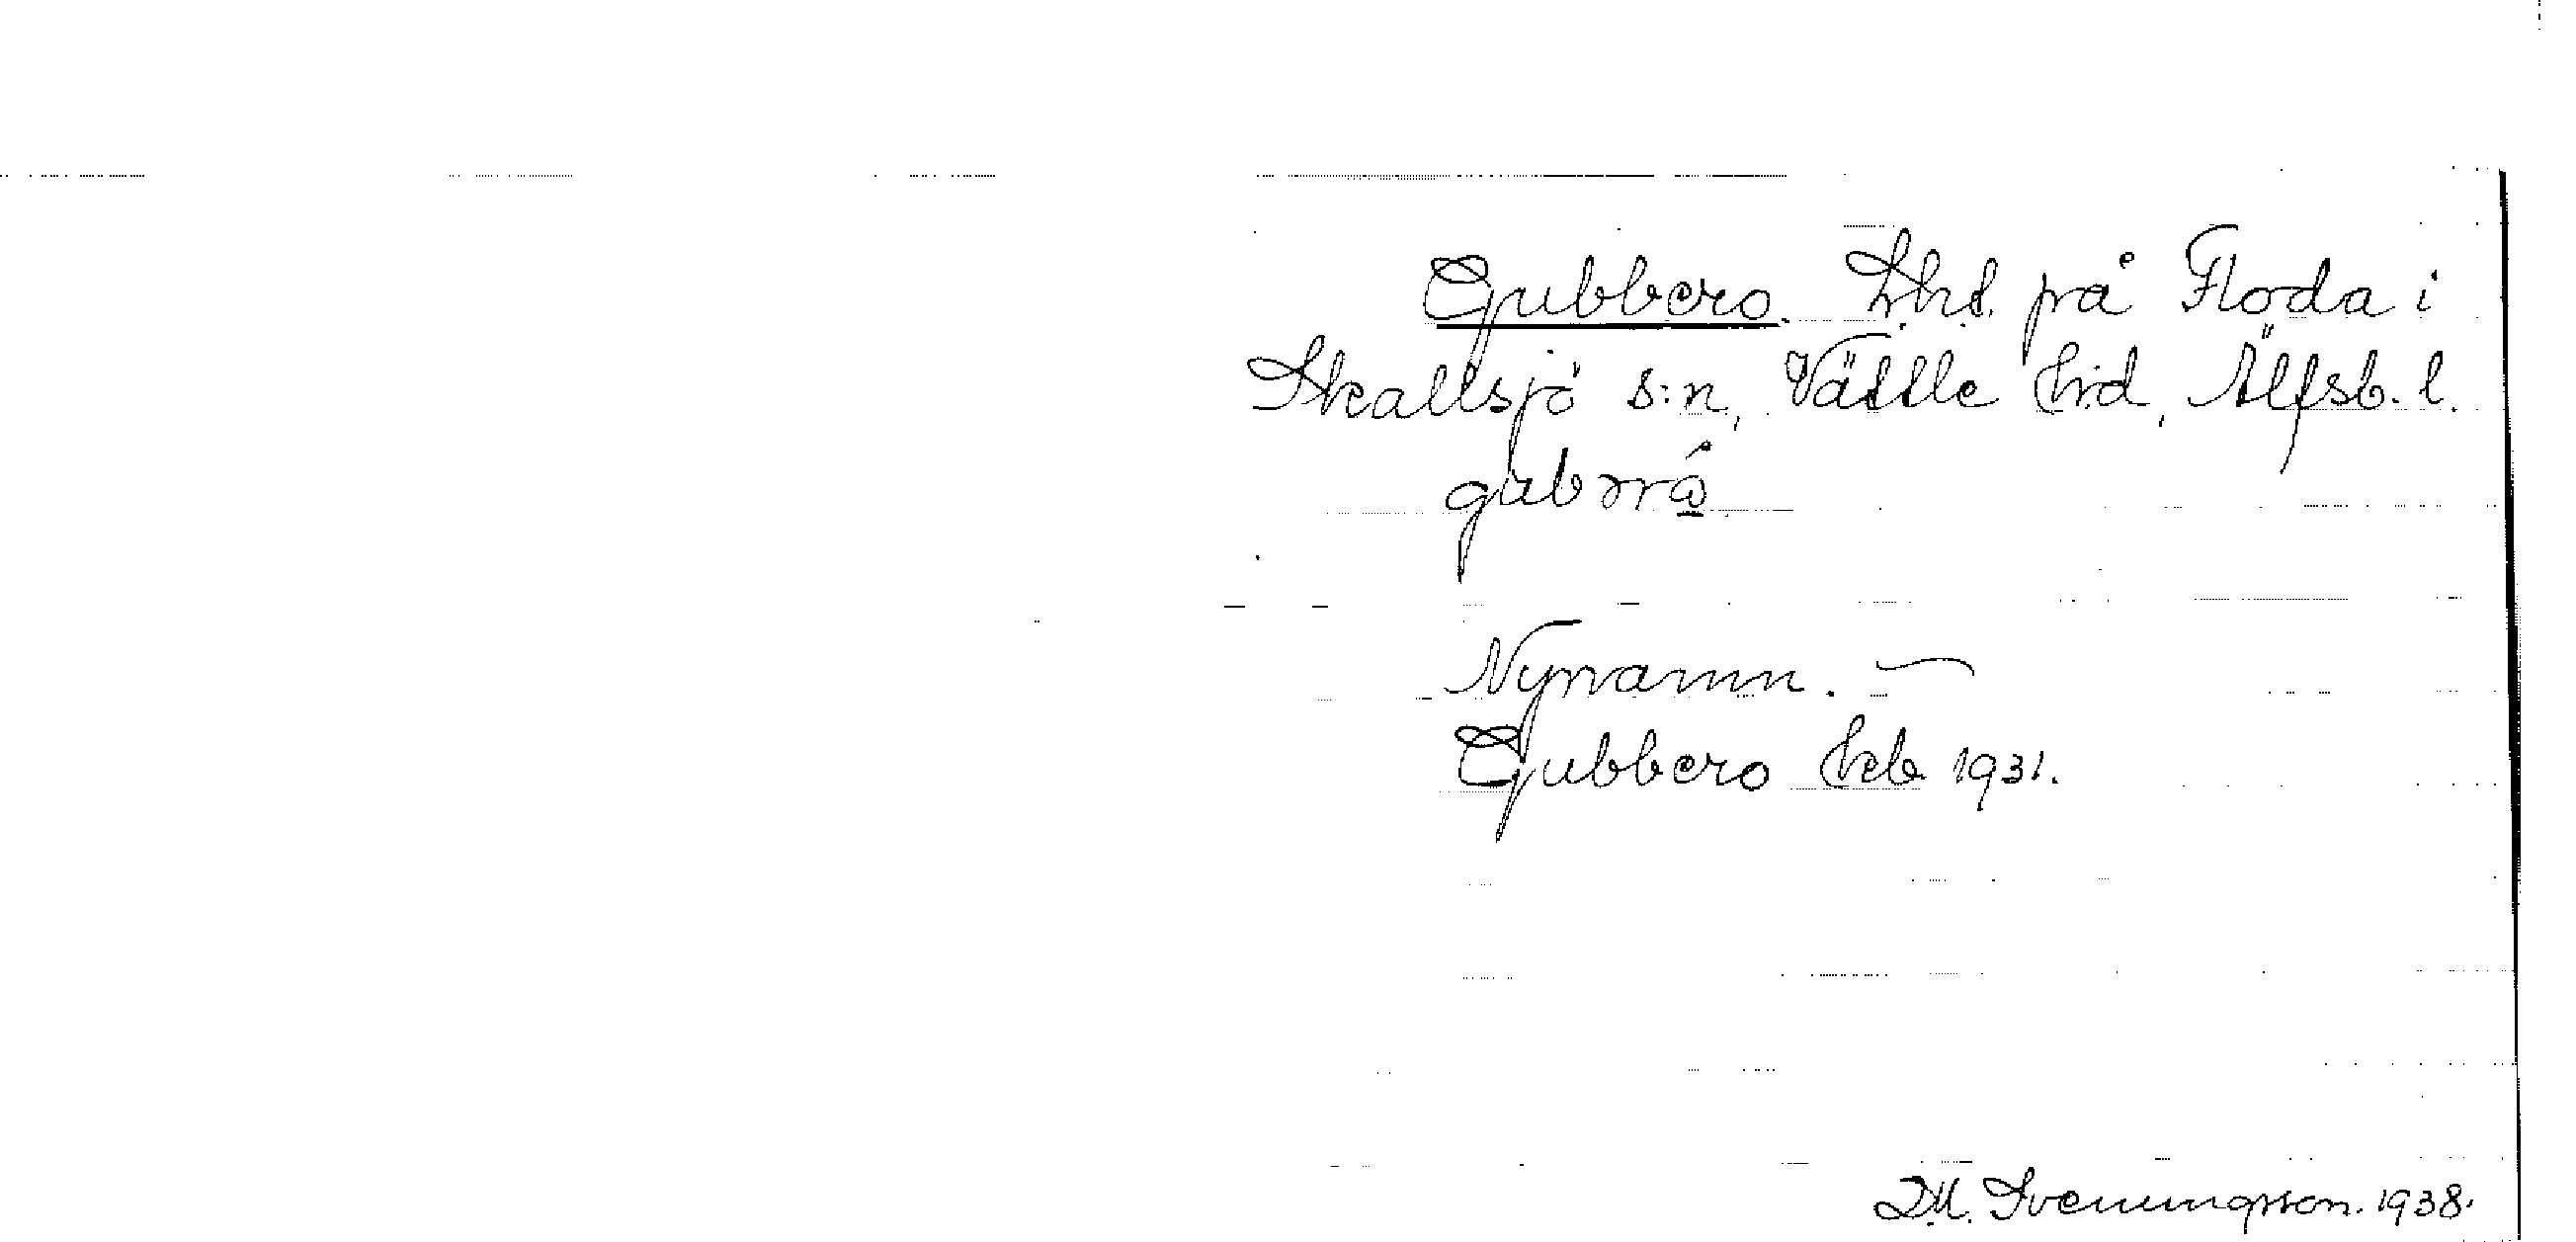 Gubbero. Lht. på Floda i
Skallsjö s:n, Vättle hrd, Älfsb. l.
Nynamn. –
Gubbero Hcb 1931.
D.M. Svenungsson. 1938.